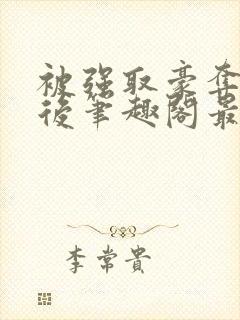 被强取豪夺
後笔趣阁最
李常貴